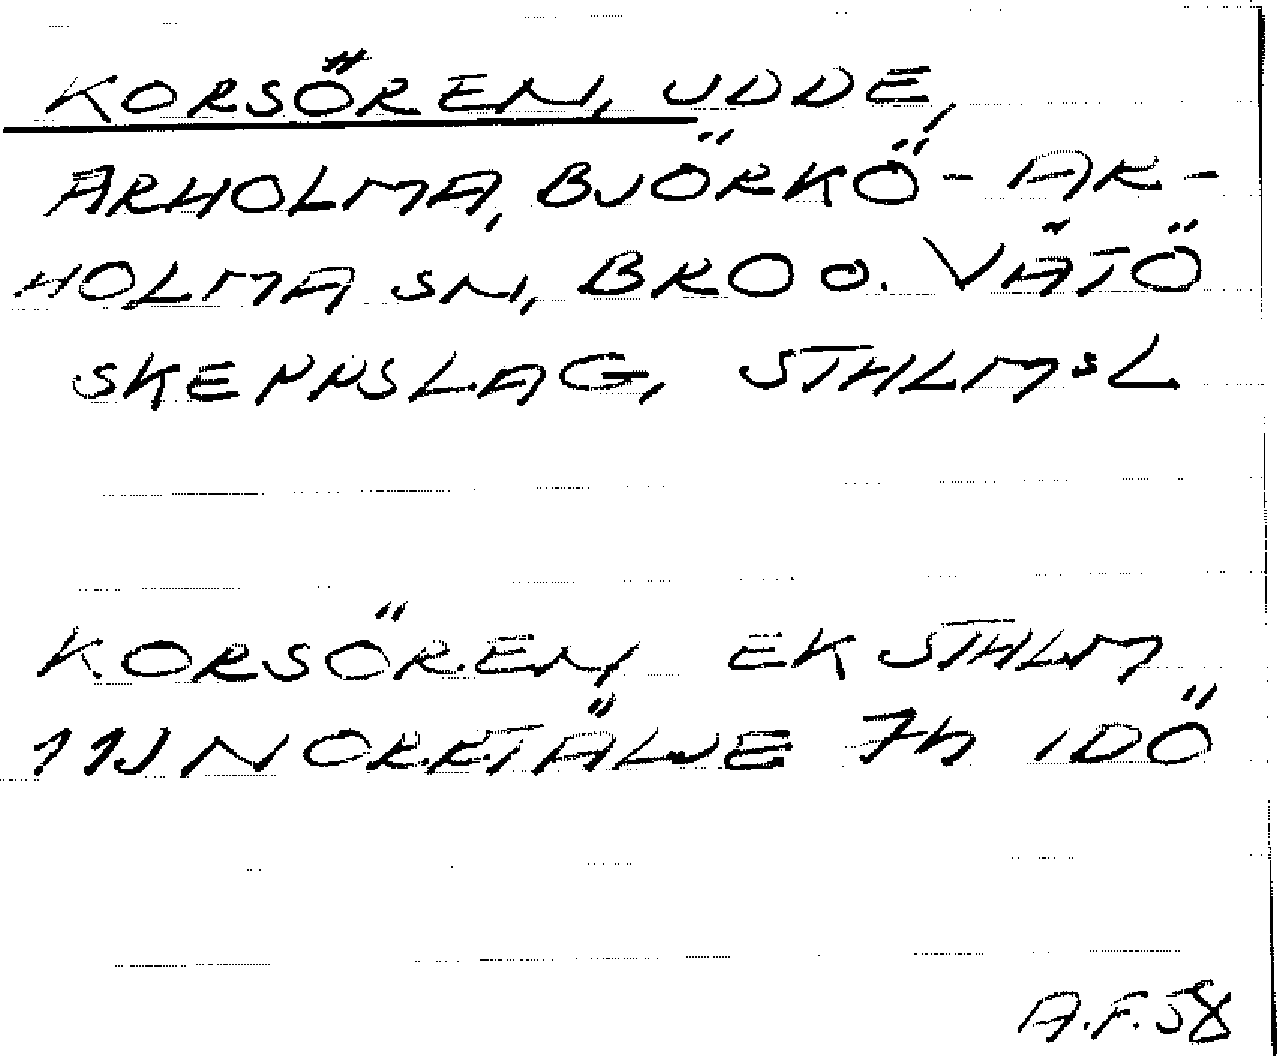 KORSÖREN, UDDE,
ARHOLMA, BJÖRKÖ-AR-
HOLMA SN, BRO O. VÄTÖ
SKEPPSLAG, STHLMSL
KORSÖREN EK STHLM
11J NORRTÄLJE 7h IDÖ
A.F. 58